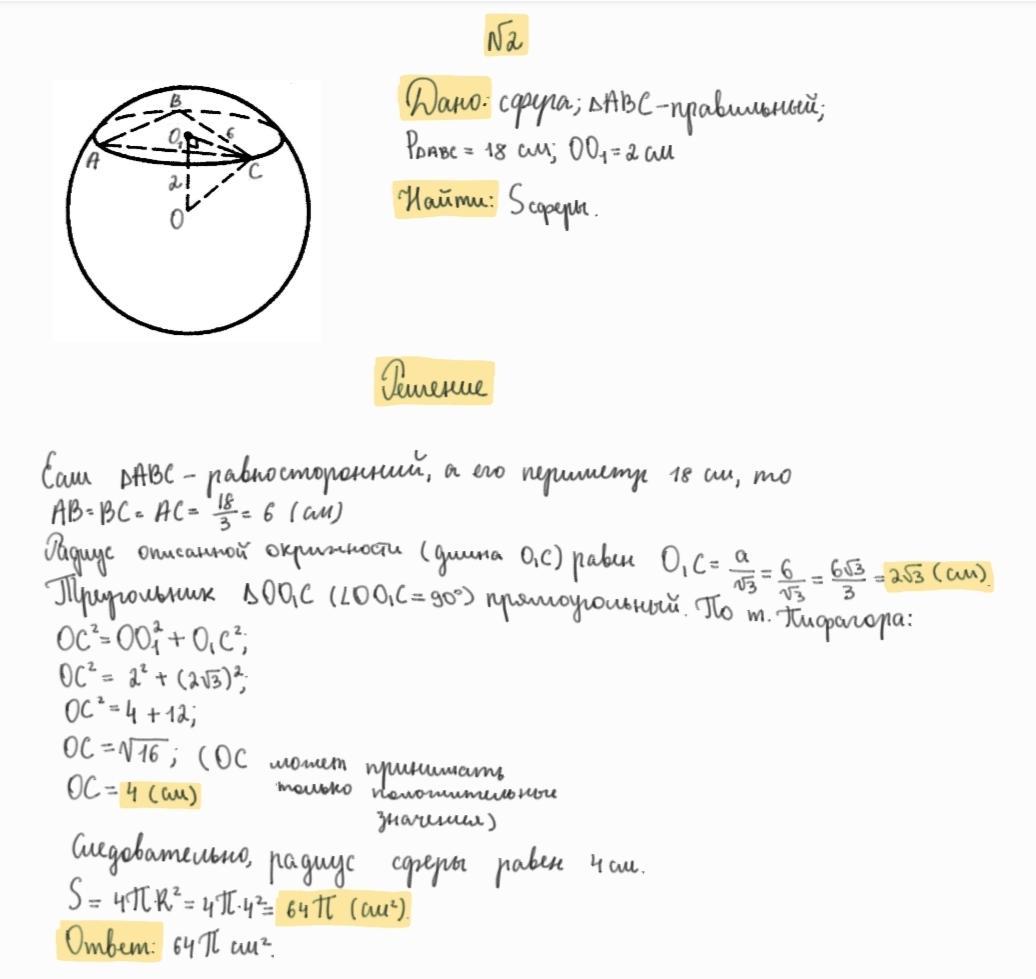 №2
B
O₁ 6
A
C
2
O
Дано: сфера; ΔABC-правильный;
PΔABC = 18 см; OO₁ = 2 см
Найти: Sсферы.
Решение
Если ΔABC - равносторонний, а его периметр 18 см, то
AB = BC = AC = 18/3 = 6 (см)
Радиус описанной окружности (длина O₁C) равен O₁C = a/√3 = 6/√3 = 6√3/3 = 2√3 (см).
Треугольник ΔOO₁C (∠OO₁C=90°) прямоугольный. По т. Пифагора:
OC² = OO₁² + O₁C²;
OC² = 2² + (2√3)²;
OC² = 4 + 12;
OC = √16; (OC может принимать
OC = 4 (см) только положительные
значения)
Следовательно, радиус сферы равен 4 см.
S = 4πR² = 4π·4² = 64π (см²).
Ответ: 64π см².